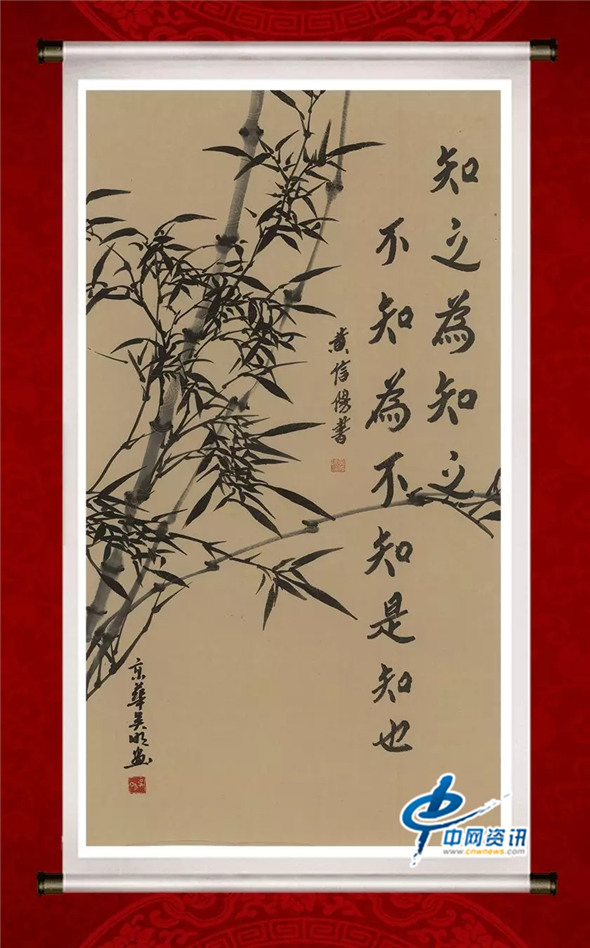 知之為知之
不知為不知是知也
黄信陽書
京華吴明画
中网资讯
www.cnwnews.com